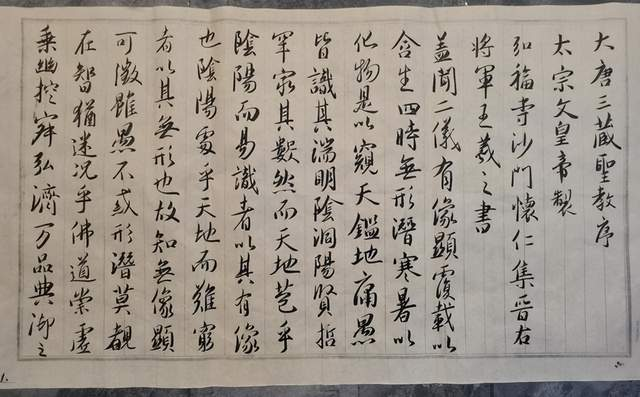 大唐三藏聖教序
太宗文皇帝製
弘福寺沙門懷仁集晉右
將軍王羲之書
盖聞二儀有像顯覆載以
含生四時無形潛寒暑以
化物是以窺天鑑地庸愚
皆識其端明陰洞陽賢哲
罕窮其數然而天地苞乎
陰陽而易識者以其有像
也陰陽處乎天地而難窮
者以其無形也故知無像顯
可徵雖愚不惑形潛莫覩
在智猶迷况乎佛道崇虛
乘幽控寂弘濟万品典御之
1.